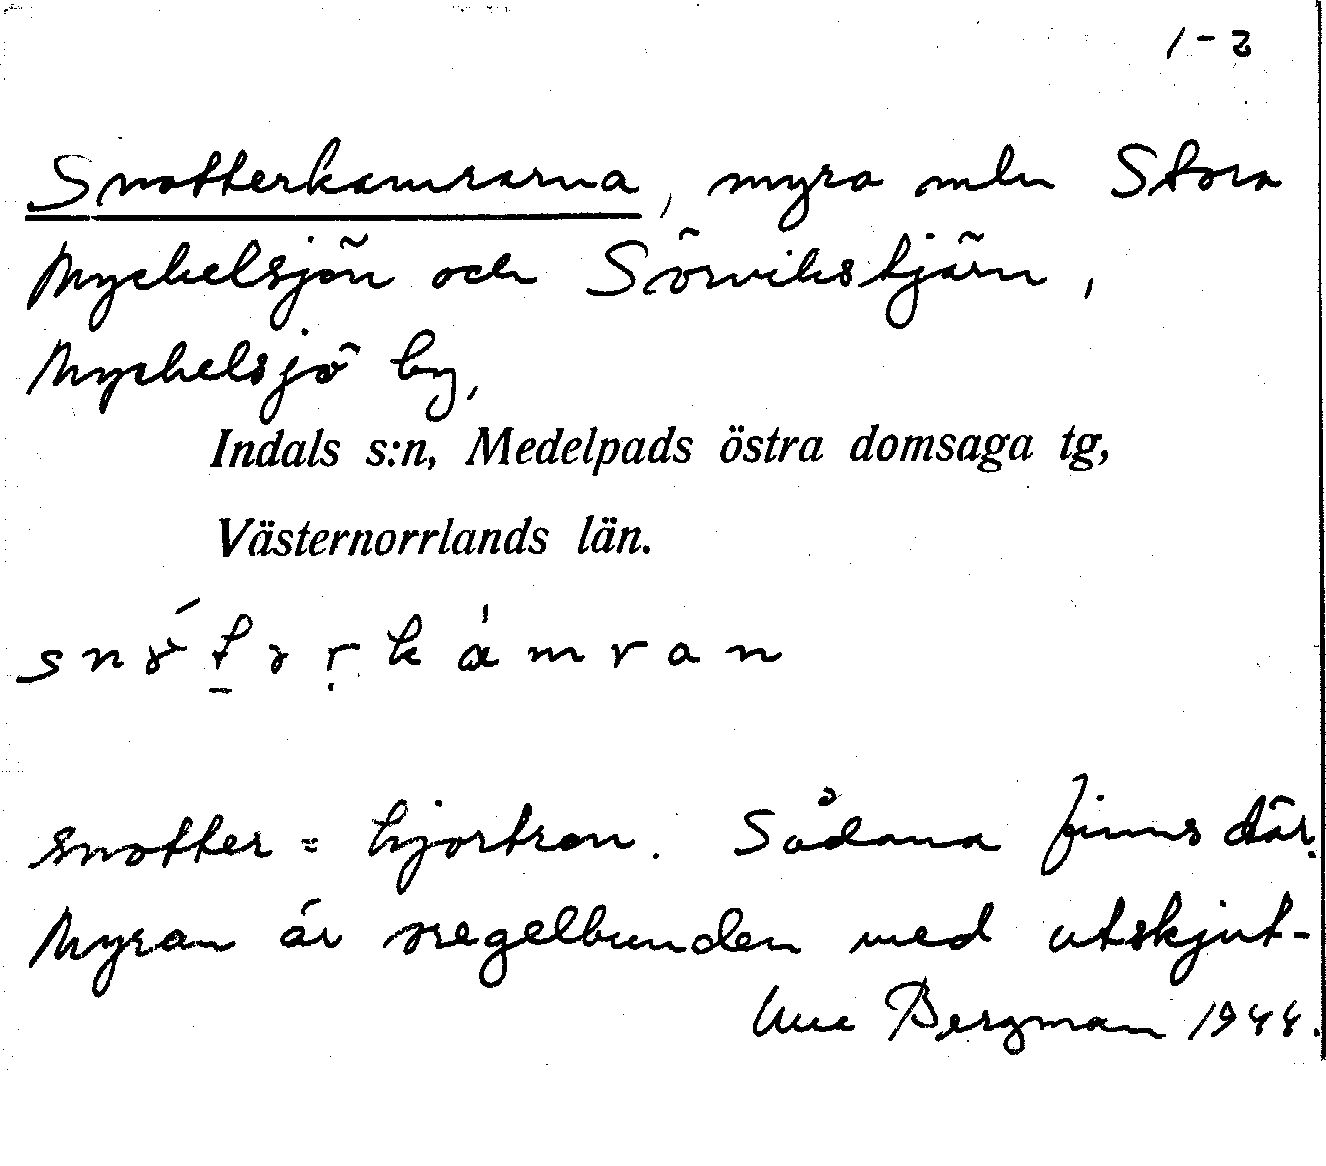 1-2
Snotterkamrarna, myra mln Stora
Myckelsjön och Sörvikstjärn,
Myckelsjö by,
Indals s:n, Medelpads östra domsaga tg,
Västernorrlands län.
snotter = hjortron. Sådana finns där.
Myran är oregelbunden med utskjut-
Bergman 1944.